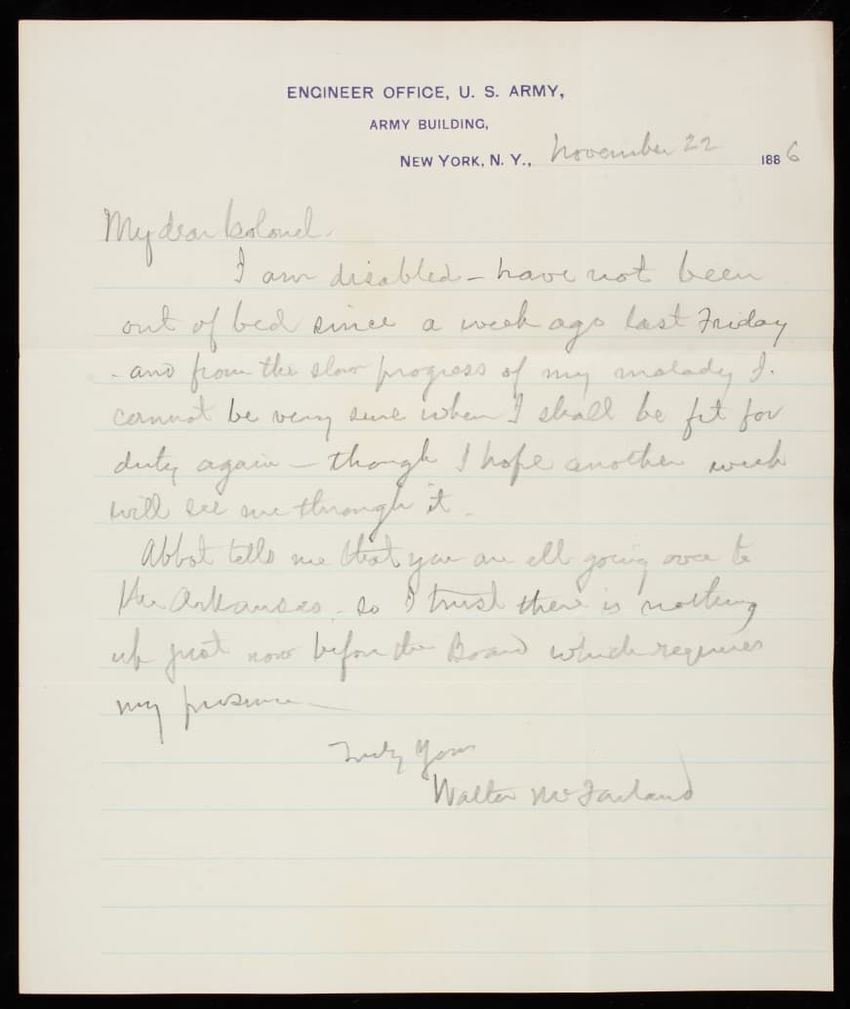 ENGINEER OFFICE, U. S. ARMY,
ARMY BUILDING,
NEW YORK, N. Y., November 22 1886
My dear Colonel.
I am disabled - have not been
out of bed since a week ago last Friday
- and from the slow progress of my malady I
cannot be very sure when I shall be fit for
duty again - though I hope another week
will see me through it.
Abbot tells me that you are all going over to
the Arkansas - so I trust there is nothing
up just now before the Board which requires
my presence
Truly Yours
Walter McFarland